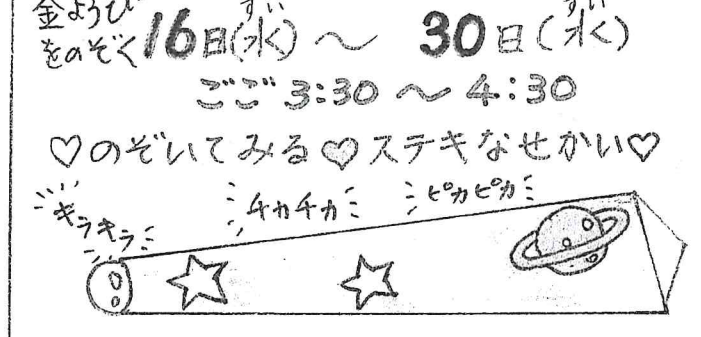 金ようび
をのぞく
16日(水) ～ 30日(水)
すい すい
ごご 3:30 ～ 4:30
♡のぞいてみる♡ステキなせかい♡
キラキラ
チカチカ
ピカピカ